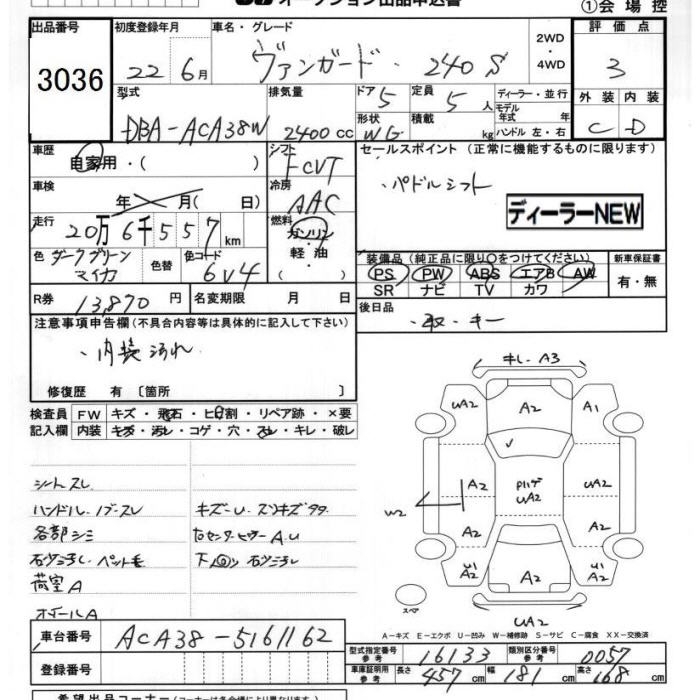 オークション出品申込書
①会場控
出品番号
3036
初度登録年月
22 6月
車名・グレード
ヴァンガード 240S
2WD
・
4WD
評価点
3
外装 内装
C D
型式
DBA-ACA38W
排気量
2400 cc
ドア 5
形状 WG
定員 5 人
積載 kg
ディーラー・並行
モデル年式 年
ハンドル 左・右
車歴
自家用・( )
シフト
FCVT
セールスポイント(正常に機能するものに限ります)
・パドルシフト
ディーラーNEW
車検
年 月( 日)
冷房
AAC
走行
20万6千557km
燃料
ガソリン
・
軽油
色 ダークグリーンマイカ
色替
色コード 6V4
装備品(純正品に限り○をつけてください)
PS PW ABS エアB AW
SR ナビ TV カワ
新車保証書
有・無
R券 13,870円
名変期限 月 日
後日品
・取・キー
注意事項申告欄(不具合内容等は具体的に記入して下さい)
・内装汚れ
修復歴 有〔箇所 〕
検査員記入欄
FW キズ・飛石・ヒビ割・リペア跡・×要
内装 キズ・汚レ・コゲ・穴・スレ・キレ・破レ
シートスレ
ハンドル、ノブスレ
キズーU、スリキズ多々
各部シミ
石少々汚レ、ペット毛
荷室A
ホイールA
キレ、A3
UA2 A2 A1
A2 UA2 UA2
W2
A2 A2
A2 UA2
スペア
A-キズ E-エクボ U-凹み W-補修跡 S-サビ C-腐食 XX-交換済
車台番号 ACA38-5161162
登録番号
型式指定番号 参考 16133
類別区分番号 参考 0057
車庫証明用 参考 長さ 457cm 幅 181cm 高さ 168cm
希望出品コーナー